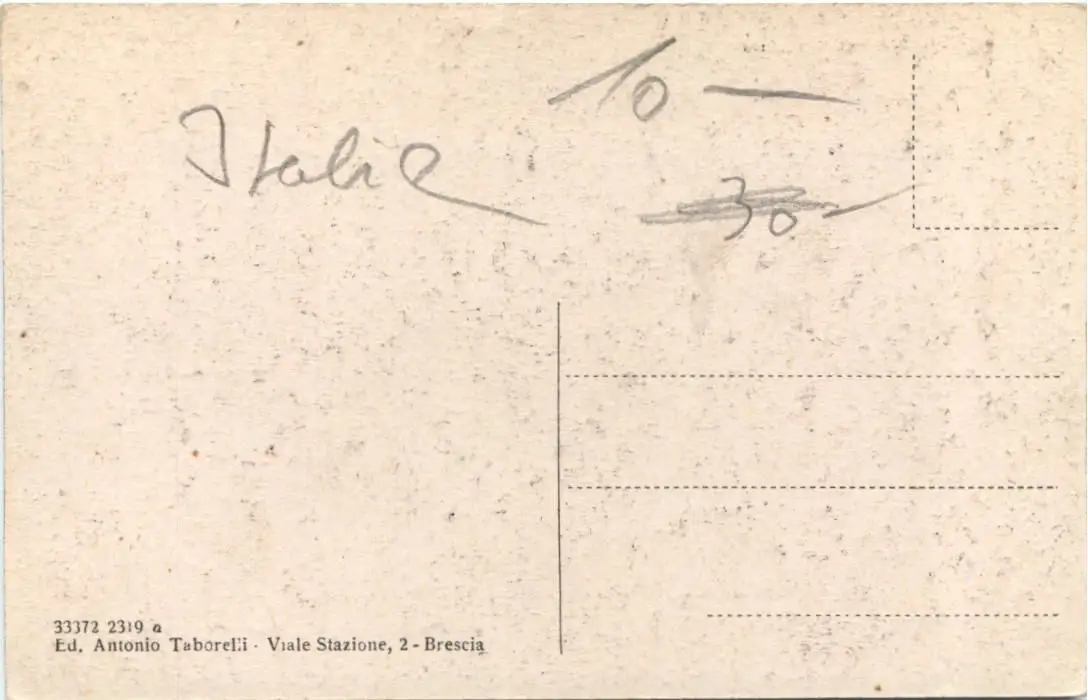 10 —
Italie
30 —
33372 2319 a
Ed. Antonio Taborelli - Viale Stazione, 2 - Brescia